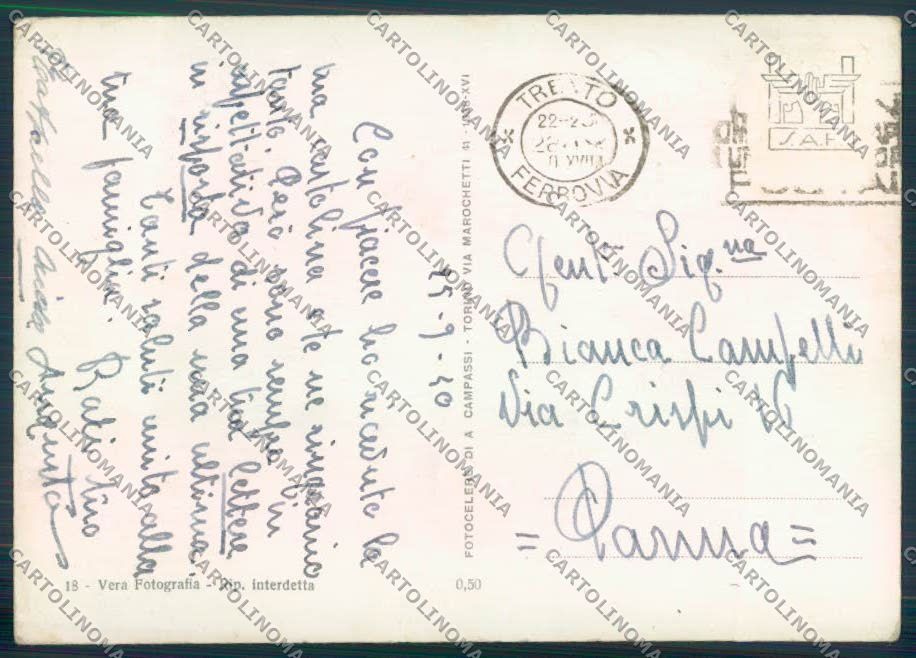 25-9-40
Con piacere ho ricevuto la
tua cartolina e te ne ringrazio
tanto. Però sono sempre in
aspettativa di una tua lettera
in risposta della mia ultima.
Tanti saluti unita alla
tua famiglia.
tuo
amica Augusta
18 - Vera Fotografia - Rip. interdetta
0,50
FOTOCELERE DI A. CAMPASSI - TORINO VIA MAROCHETTI 41 - 1938-XVI
TRENTO
22-23
FERROVIA
S.A.F.
Gent. Sig.na
Bianca Campelli
Via Crispi 16
= Parma =
CARTOLINOMANIA